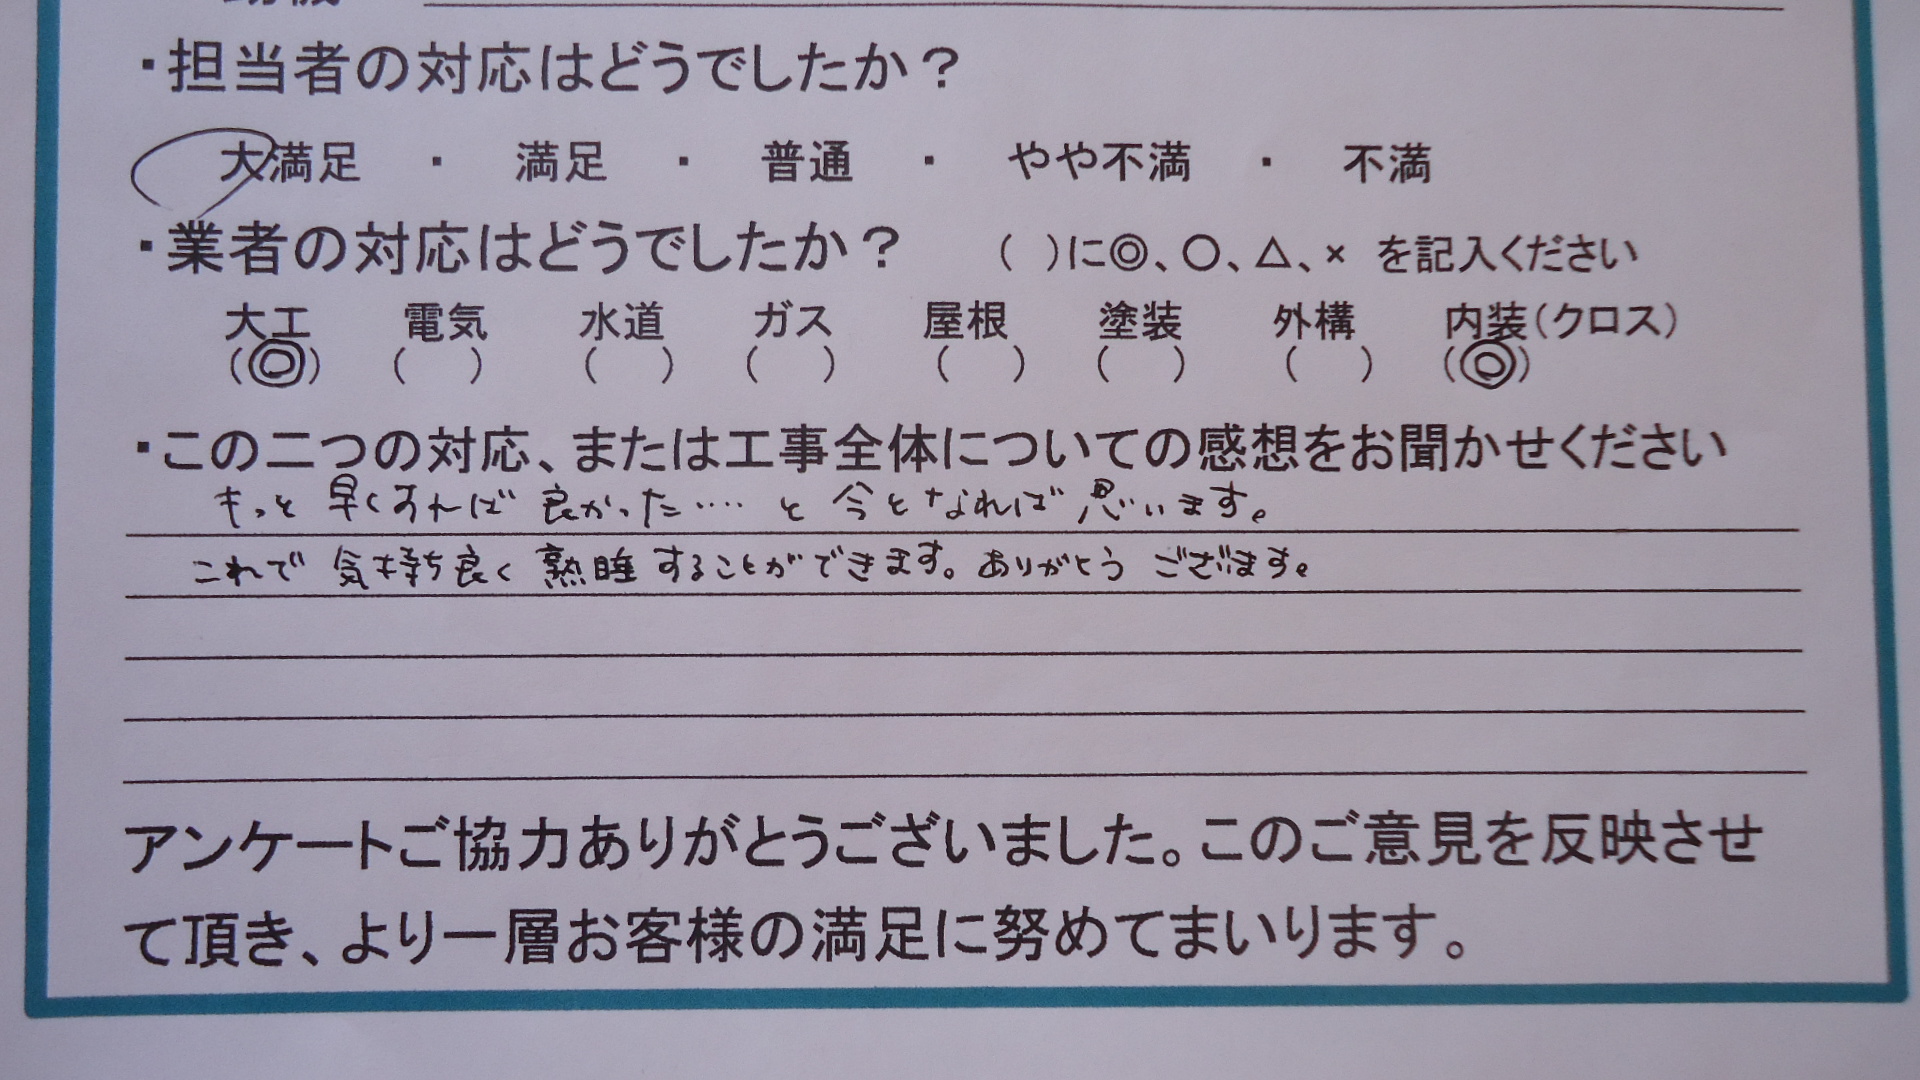 ・担当者の対応はどうでしたか？
大満足 ・ 満足 ・ 普通 ・ やや不満 ・ 不満
・業者の対応はどうでしたか？ （ ）に◎、○、△、× を記入ください
大工 電気 水道 ガス 屋根 塗装 外構 内装（クロス）
（◎） （ ） （ ） （ ） （ ） （ ） （ ） （◎）
・この二つの対応、または工事全体についての感想をお聞かせください
もっと早くすれば良かった‥‥と今となれば思います。
これで気持ち良く熟睡することができます。ありがとうございます。
アンケートご協力ありがとうございました。このご意見を反映させ
て頂き、より一層お客様の満足に努めてまいります。